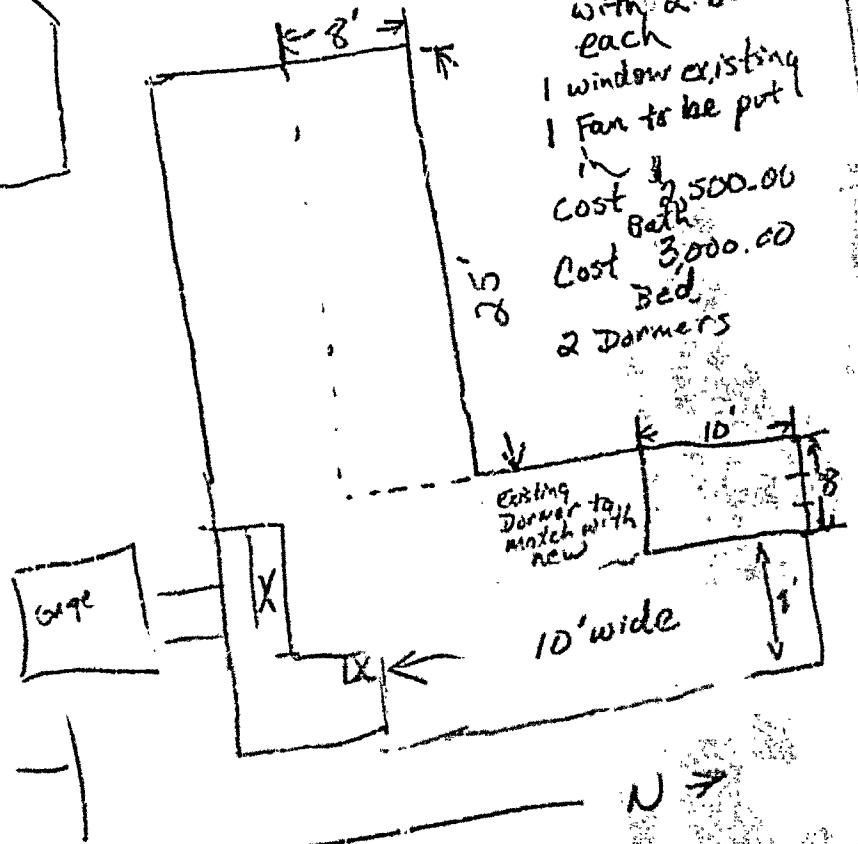 8'
with 2
each
1 window existing
1 Fan to be put
in
Cost $2,500.00
Bath
Cost 3,000.00
Bed
2 Dormers
25'
10'
8'
Existing
Dormer to
match with
new
10' wide
X
X
N